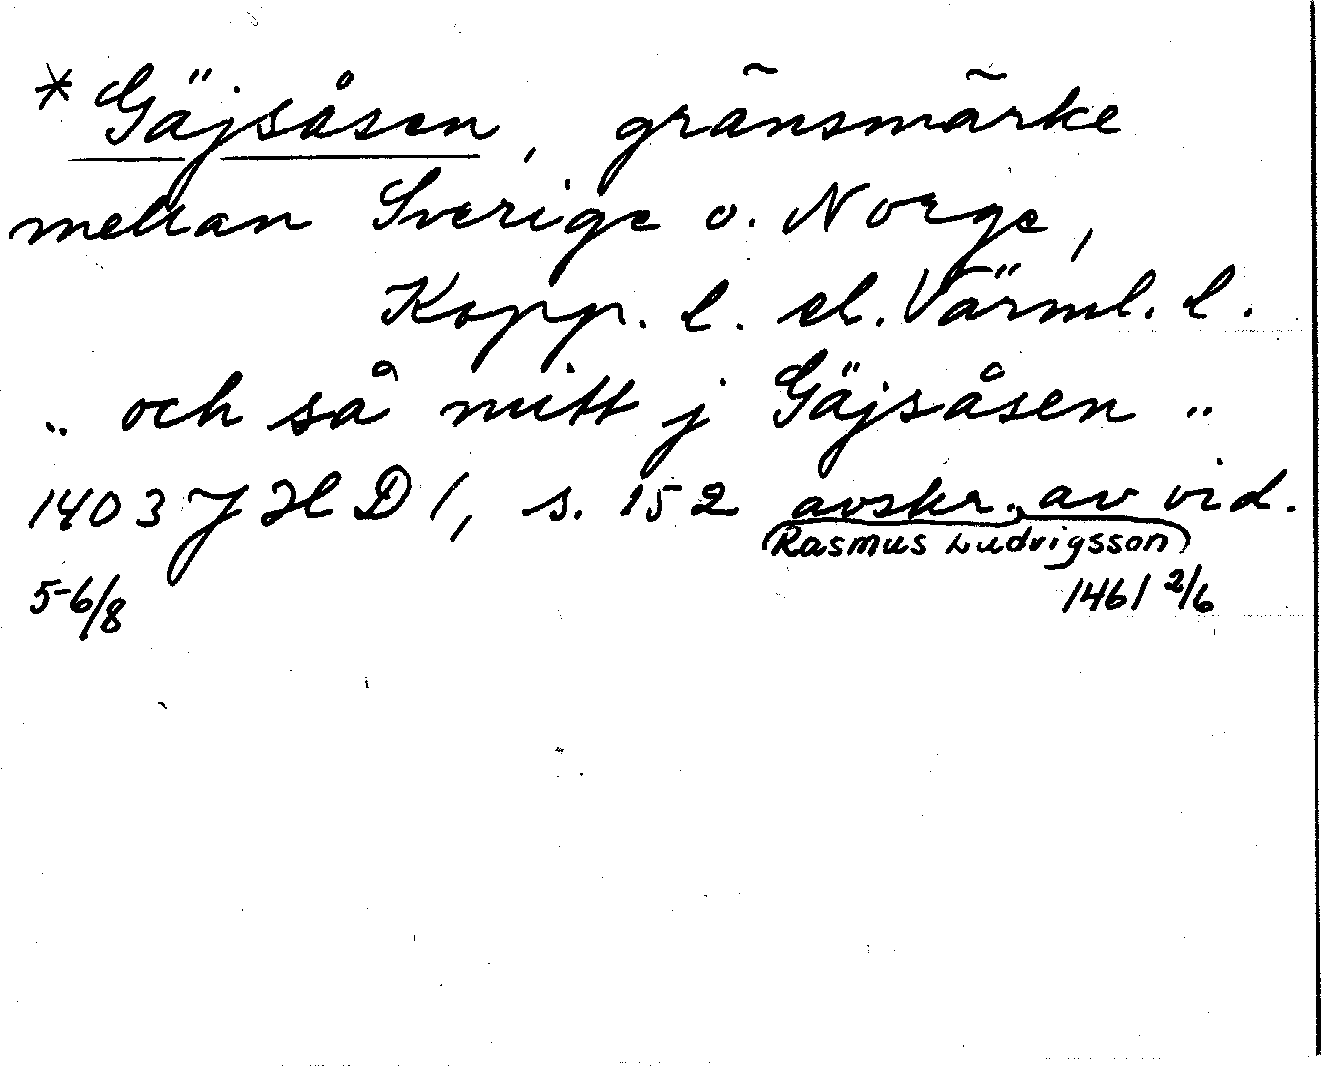 * Gäjsåsen, gränsmärke
mellan Sverige o. Norge,
Kopp. l. el. Värml. l.
.. och så mitt j Gäjsåsen ..
1403 JHD 1, s. 152 avskr. av vid.
(Rasmus Ludvigsson)
5-6/8 1461 2/6